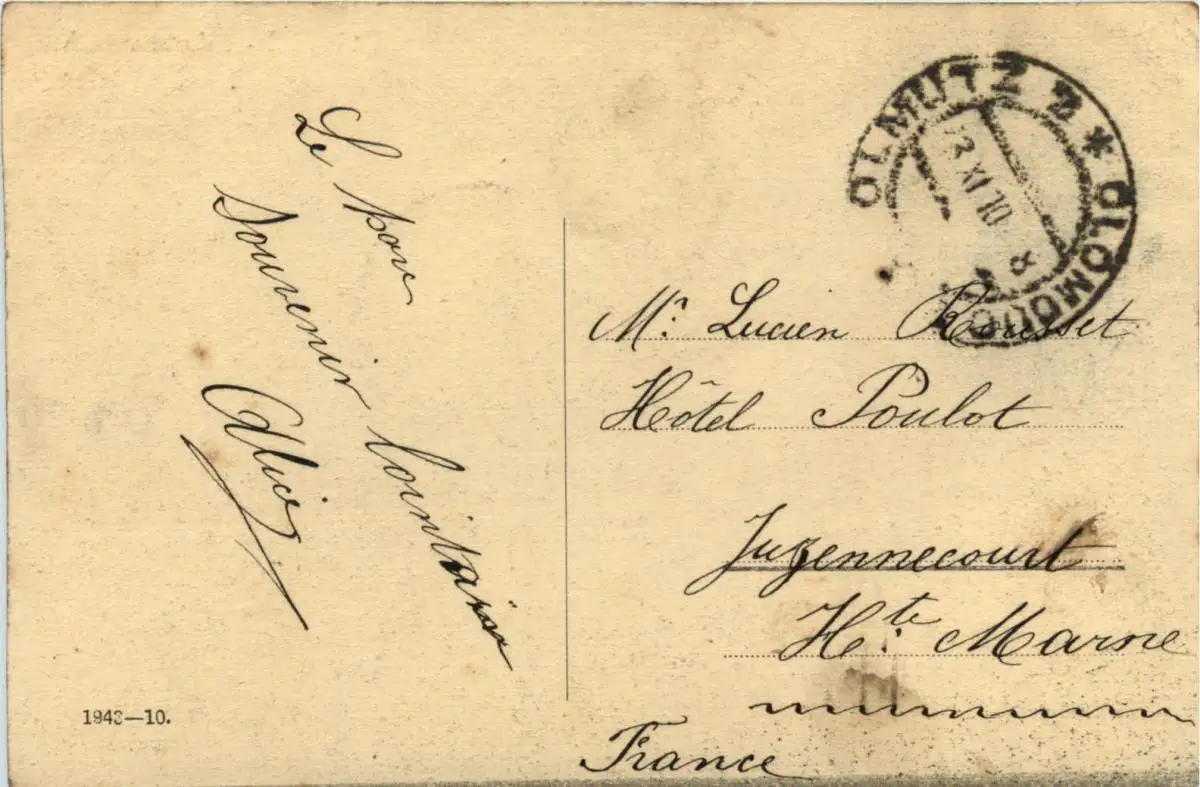 Le bon
Souvenir lointain
Alice
1943-10.
OLMÜTZ 2 * OLOMOUC
2 XI 10
Mr. Lucien Rousset
Hôtel Poulot
Juzennecourt
Hte. Marne
France